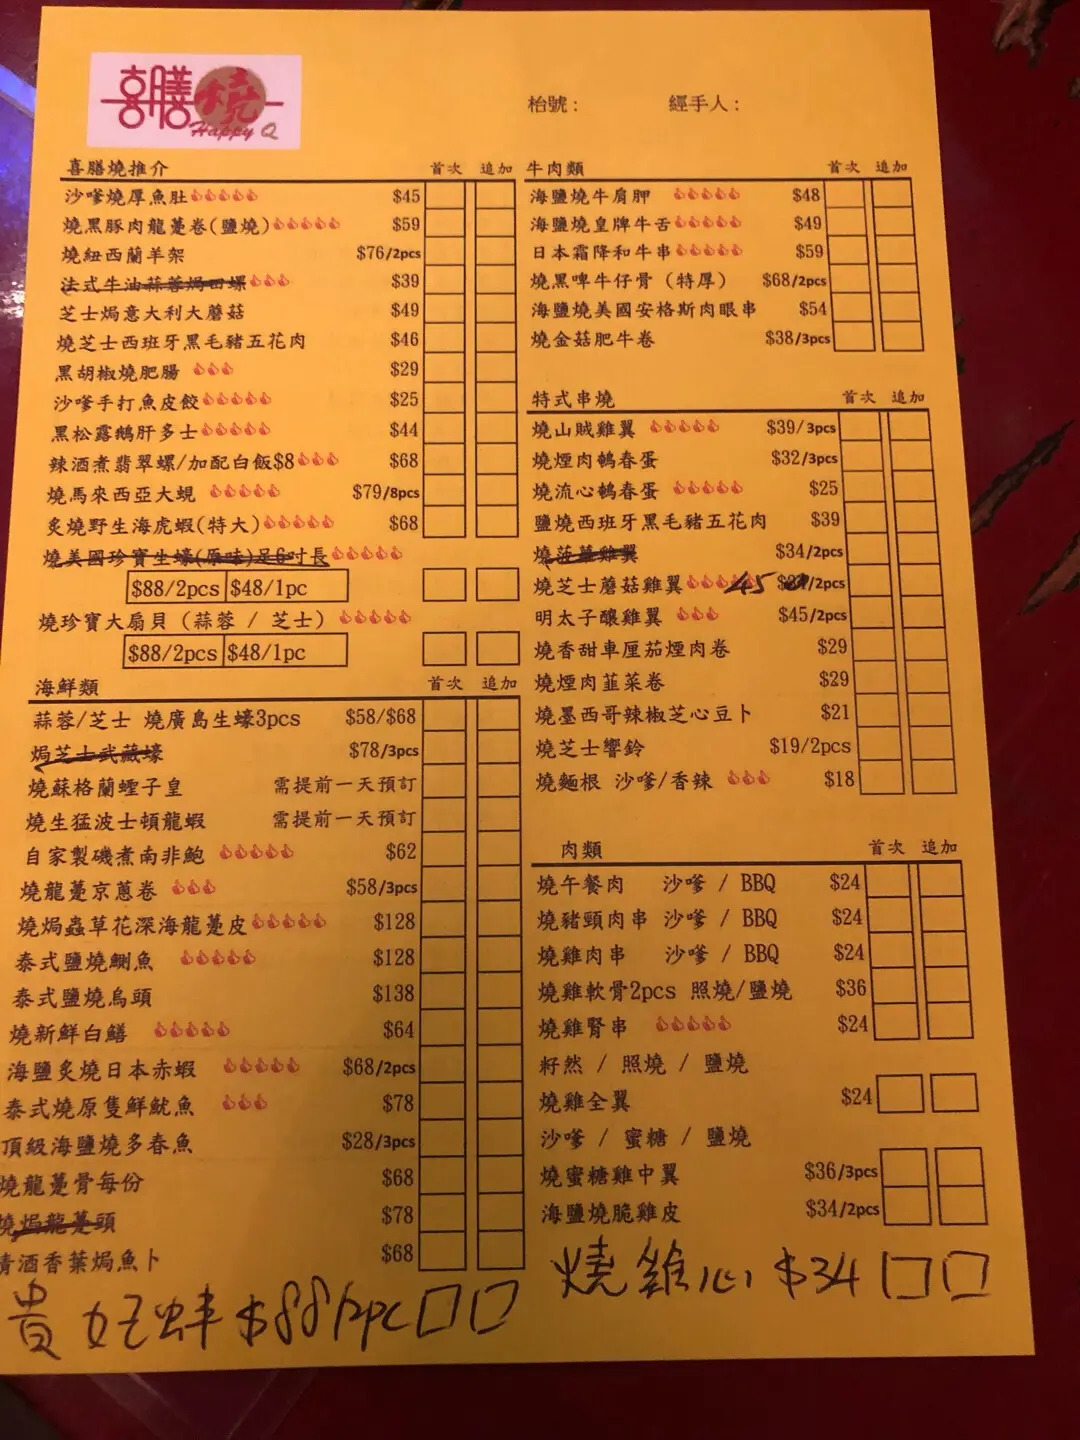 喜膳燒
Happy Q
枱號：
經手人：
喜膳燒推介 首次 追加
沙嗲燒厚魚肚 $45
燒黑豚肉龍躉卷(鹽燒) $59
燒紐西蘭羊架 $76/2pcs
法式牛油蒜蓉焗田螺 $39
芝士焗意大利大蘑菇 $49
燒芝士西班牙黑毛豬五花肉 $46
黑胡椒燒肥腸 $29
沙嗲手打魚皮餃 $25
黑松露鵝肝多士 $44
辣酒煮翡翠螺/加配白飯$8 $68
燒馬來西亞大蜆 $79/8pcs
炙燒野生海虎蝦(特大) $68
燒美國珍寶生蠔(原味)足6吋長
$88/2pcs $48/1pc
燒珍寶大扇貝 (蒜蓉 / 芝士)
$88/2pcs $48/1pc
海鮮類 首次 追加
蒜蓉/芝士 燒廣島生蠔3pcs $58/$68
焗芝士武藏蠔 $78/3pcs
燒蘇格蘭蟶子皇 需提前一天預訂
燒生猛波士頓龍蝦 需提前一天預訂
自家製磯煮南非鮑 $62
燒龍躉京蔥卷 $58/3pcs
燒焗蟲草花深海龍躉皮 $128
泰式鹽燒鰂魚 $128
泰式鹽燒烏頭 $138
燒新鮮白鱔 $64
海鹽炙燒日本赤蝦 $68/2pcs
泰式燒原隻鮮魷魚 $78
頂級海鹽燒多春魚 $28/3pcs
燒龍躉骨每份 $68
燒焗龍躉頭 $78
清酒香葉焗魚卜 $68
貴妃蚌 $88/2pc 口口
牛肉類 首次 追加
海鹽燒牛肩胛 $48
海鹽燒皇牌牛舌 $49
日本霜降和牛串 $59
燒黑啤牛仔骨 (特厚) $68/2pcs
海鹽燒美國安格斯肉眼串 $54
燒金菇肥牛卷 $38/3pcs
特式串燒 首次 追加
燒山賊雞翼 $39/3pcs
燒煙肉鵪春蛋 $32/3pcs
燒流心鵪春蛋 $25
鹽燒西班牙黑毛豬五花肉 $39
燒菠蘿雞翼 $34/2pcs
燒芝士蘑菇雞翼 45 /2pcs
明太子釀雞翼 $45/2pcs
燒香甜車厘茄煙肉卷 $29
燒煙肉韮菜卷 $29
燒墨西哥辣椒芝心豆卜 $21
燒芝士響鈴 $19/2pcs
燒麵根 沙嗲/香辣 $18
肉類 首次 追加
燒午餐肉 沙嗲 / BBQ $24
燒豬頸肉串 沙嗲 / BBQ $24
燒雞肉串 沙嗲 / BBQ $24
燒雞軟骨2pcs 照燒/鹽燒 $36
燒雞腎串 $24
籽然 / 照燒 / 鹽燒
燒雞全翼 $24
沙嗲 / 蜜糖 / 鹽燒
燒蜜糖雞中翼 $36/3pcs
海鹽燒脆雞皮 $34/2pcs
燒雞心 $34 口口